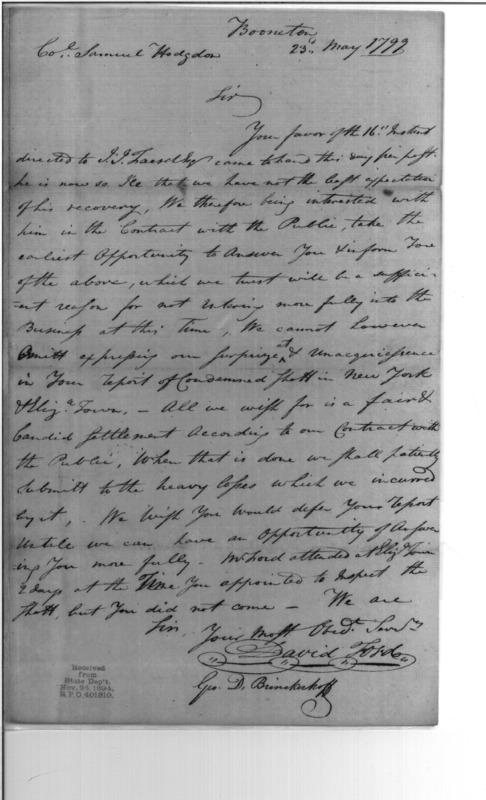 Booneton
23d. May 1792
Col. Samuel Hodgdon
Sir
Your favor of the 16th. Instant
directed to J. J. Faesch Esqr came to hand this day per post.
he is now so Ill that we have not the least expectation
of his recovery, We therefore being interested with
him in the Contract with the Public, take the
earliest Opportunity to Answer You & inform You
of the above, which we trust will be a suffici-
-ent reason for not entering more fully into the
Business at this Time, We cannot however
Omitt expressing our surprize at & Unacquiessence
in Your report of Condemned Shott in New York
& Eliza. Town. — All we wish for is a fair &
Candid Settlement According to our Contract with
the Public, When that is done we shall patiently
submitt to the heavy losses which we incurred
by it, . We Wish You would defer Your report
Untile we can have an Opportunity of Answer
-ing You more fully. — Mr Ford attended at Eliz: Town
2 days at the Time You appointed to Inspect the
Shott, but You did not come — We are
Sir Your Most Obedt. Servts
David Ford
Geo. D. Brinckerhoff
Received
from
State Dep't.
Nov. 24, 1894.
R. P. O. 401810.